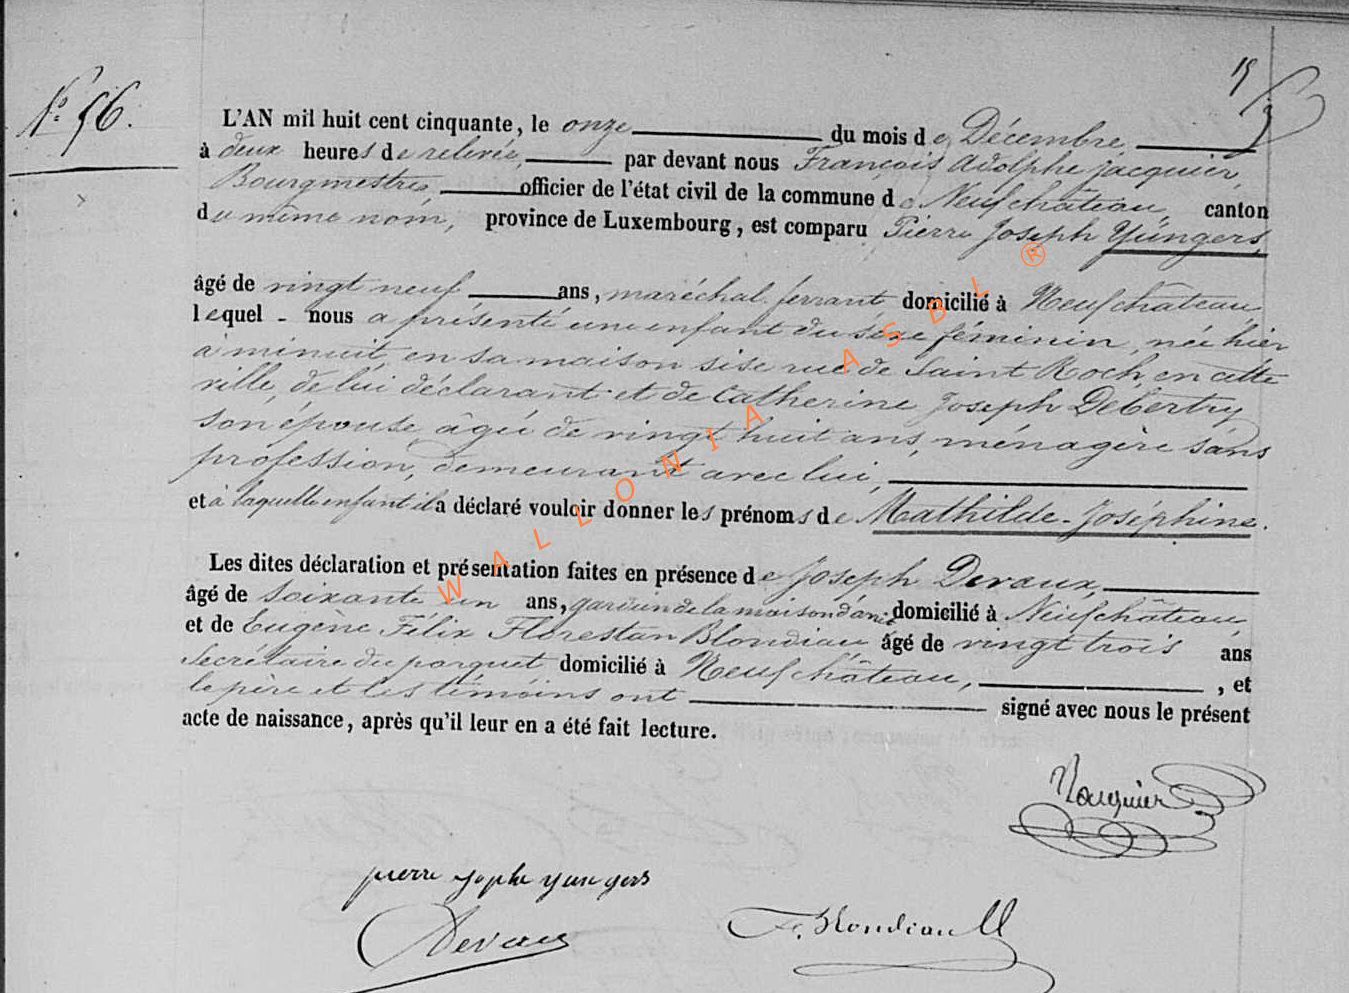 N.° 56.
L'AN mil huit cent cinquante, le onze du mois de Décembre,
à deux heures de relevée, par devant nous François Adolphe Jacquier,
Bourgmestre, officier de l'état civil de la commune de Neufchâteau, canton
du même nom, province de Luxembourg, est comparu Pierre Joseph Yüngers,
âgé de vingt neuf ans, maréchal ferrant domicilié à Neufchâteau
lequel - nous a présenté une enfant du sexe féminin, née hier
à minuit, en sa maison sise rue de Saint Roch, en cette
ville, de lui déclarant et de Catherine Joseph Debertry
son épouse âgée de vingt huit ans, ménagère sans
profession, demeurant avec lui,
et à laquelle enfant il a déclaré vouloir donner les prénoms de Mathilde-Joséphine.
Les dites déclaration et présentation faites en présence de Joseph Devaux,
âgé de soixante un ans, gardien de la maison d'arrêt domicilié à Neufchâteau,
et de Eugène Félix Florestan Blondiau, âgé de vingt trois ans
Secrétaire du parquet domicilié à Neufchâteau, , et
le père et les témoins ont signé avec nous le présent
acte de naissance, après qu'il leur en a été fait lecture.
Jacquier
pierre josphe yungers
Devaux
F. Blondiau
WALLONIA ASBL ®